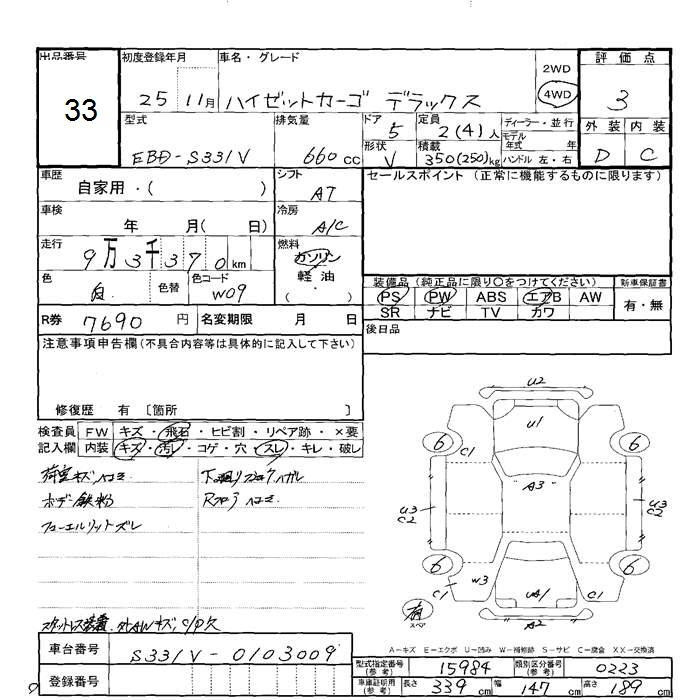 出品番号 33
初度登録年月 25 11月
車名・グレード ハイゼットカーゴ デラックス
2WD
4WD
評価点 3
外装 内装
D C
型式 EBD-S331V
排気量 660cc
ドア 5
形状 V
定員 2(4)人
積載 350(250)kg
ディーラー・並行
モデル年式 年
ハンドル 左・右
車歴 自家用・( )
シフト AT
セールスポイント (正常に機能するものに限ります)
車検 年 月( 日)
冷房 A/C
走行 9万3千370km
燃料 ガソリン
軽油
・( )
色 白 色替
色コード W09
装備品(純正品に限り○をつけてください)
PS PW ABS エアB AW
SR ナビ TV カワ
新車保証書
有・無
R券 7690円
名変期限 月 日
後日品
注意事項申告欄(不具合内容等は具体的に記入して下さい)
修復歴 有 [箇所 ]
検査員 FW キズ・飛石・ヒビ割・リペア跡・×要
記入欄 内装 キズ・汚レ・コゲ・穴・スレ・キレ・破レ
荷室キズ ヘコミ
ボデー鉄粉
フューエルリットズレ
Rフロア ヘコミ
U2
U1
6 6
C1
A3
U3 C2
U3 C2
6 6
W3
C1
UA1
C1
A2
有
スペア
A-キズ E-エクボ U-凹み W-補修跡 S-サビ C-腐食 XX-交換済
車台番号 S331V-0103009
登録番号
型式指定番号(参考) 15984
類別区分番号(参考) 0223
車庫証明用(参考) 長さ 339cm 幅 147cm 高さ 189cm